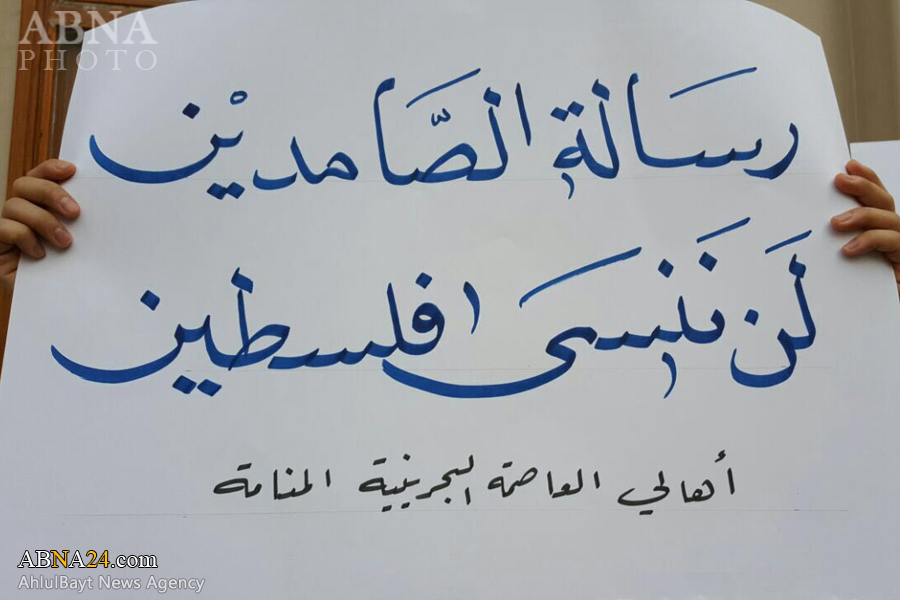 ABNA
PHOTO
رسالة الصّامدين
لَن ننسى فلسطين
أهالي العاصمة البحرينية المنامة
ABNA24.com
AhlulBayt News Agency